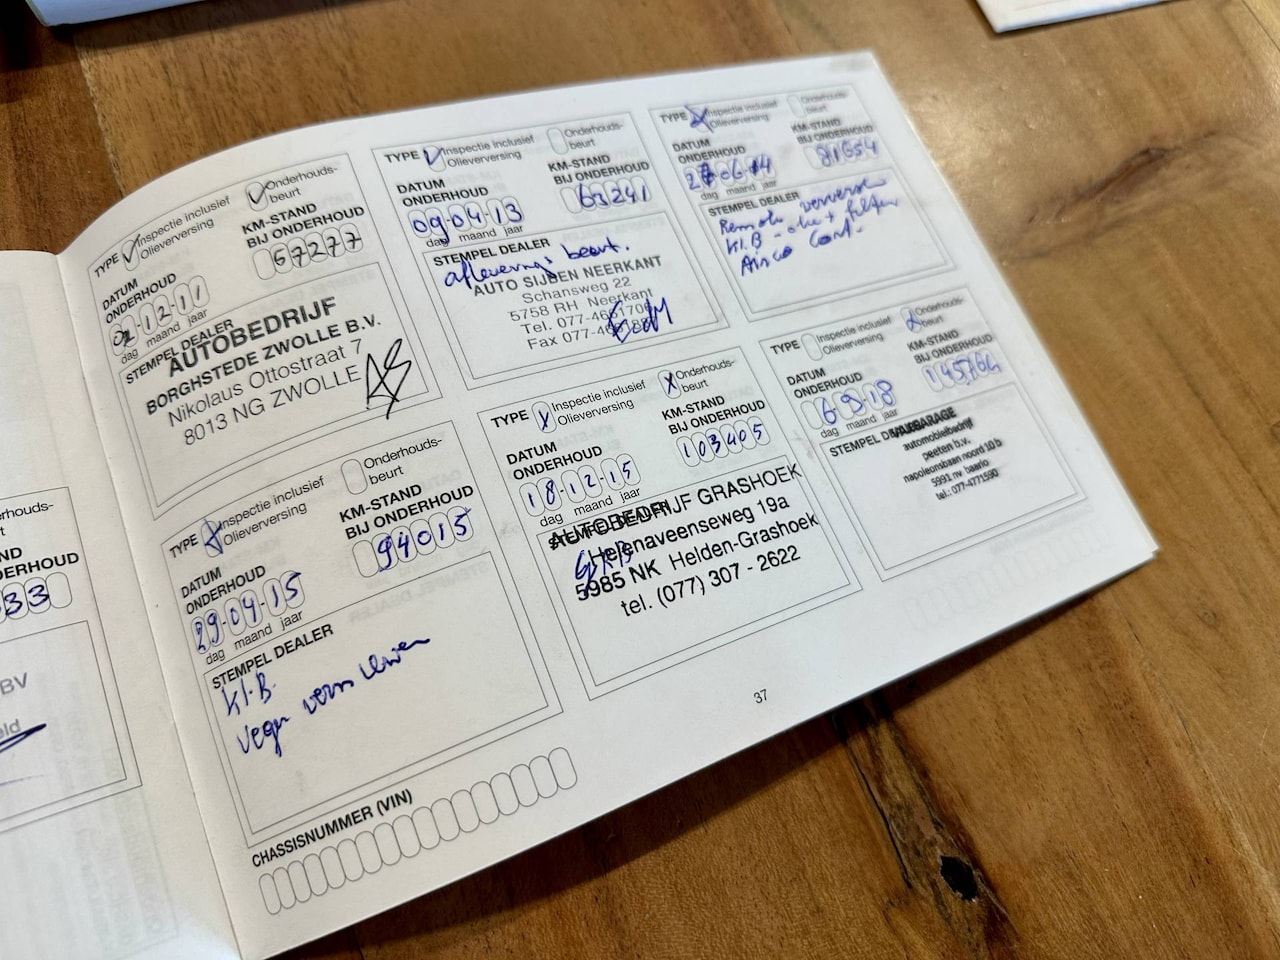 TYPE Inspectie inclusief Olieverversing
Onderhouds-
beurt
DATUM ONDERHOUD
KM-STAND BIJ ONDERHOUD
02-12-11
67277
dag maand jaar
STEMPEL DEALER
AUTOBEDRIJF
BORGHSTEDE ZWOLLE B.V.
Nikolaus Ottostraat 7
8013 NG ZWOLLE
TYPE Inspectie inclusief Olieverversing
Onderhouds-
beurt
DATUM ONDERHOUD
KM-STAND BIJ ONDERHOUD
09-04-13
63241
dag maand jaar
STEMPEL DEALER
afleverings beurt.
AUTO SIJBEN NEERKANT
Schansweg 22
5758 RH Neerkant
Tel. 077-4661706
Fax 077-466
TYPE Inspectie inclusief Olieverversing
Onderhouds-
beurt
DATUM ONDERHOUD
KM-STAND BIJ ONDERHOUD
06 14
81654
dag maand jaar
STEMPEL DEALER
Remolie verversen
Kl.B - olie + filter
Airco Cont.
TYPE Inspectie inclusief Olieverversing
Onderhouds-
beurt
DATUM ONDERHOUD
KM-STAND BIJ ONDERHOUD
29-04-15
94015
dag maand jaar
STEMPEL DEALER
Kl.B
TYPE Inspectie inclusief Olieverversing
Onderhouds-
beurt
DATUM ONDERHOUD
KM-STAND BIJ ONDERHOUD
18-12-15
103405
dag maand jaar
STEMPEL DEALER
AUTOBEDRIJF GRASHOEK
Helenaveenseweg 19a
5985 NK Helden-Grashoek
tel. (077) 307 - 2622
TYPE Inspectie inclusief Olieverversing
Onderhouds-
beurt
DATUM ONDERHOUD
KM-STAND BIJ ONDERHOUD
6-9-18
145764
dag maand jaar
STEMPEL DEALER
automobielbedrijf
peeten b.v.
napoleonsbaan noord 10 b
5991 nv baarlo
tel.: 077-4771590
CHASSISNUMMER (VIN)
37